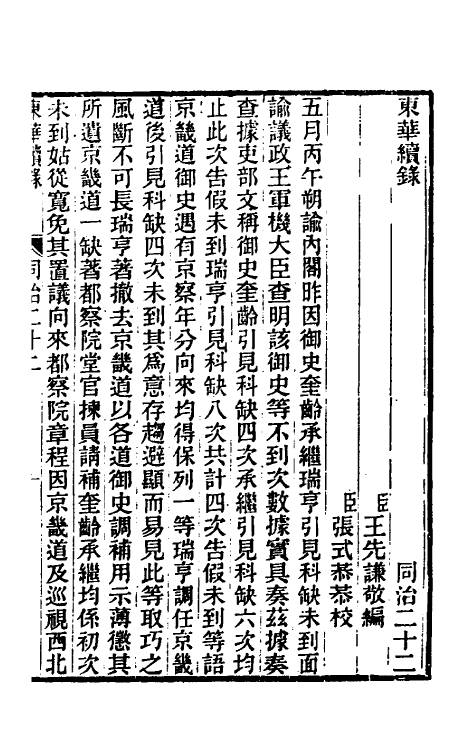 東華續錄 同治二十二
臣王先謙敬編
臣張式恭恭校
五月丙午朔諭內閣昨因御史奎齡承繼瑞亨引見科缺未到面
諭議政王軍機大臣查明該御史等不到次數據實具奏茲據奏
查據吏部文稱御史奎齡引見科缺四次承繼引見科缺六次均
止此次告假未到瑞亨引見科缺八次共計四次告假未到等語
京畿道御史遇有京察年分向來均得保列一等瑞亨調任京畿
道後引見科缺四次未到其為意存趨避顯而易見此等取巧之
風斷不可長瑞亨著撤去京畿道以各道御史調補用示薄懲其
所遺京畿道一缺著都察院堂官揀員請補奎齡承繼均係初次
未到姑從寬免其置議向來都察院章程因京畿道及巡視西北
東華續錄 同治二十二 一